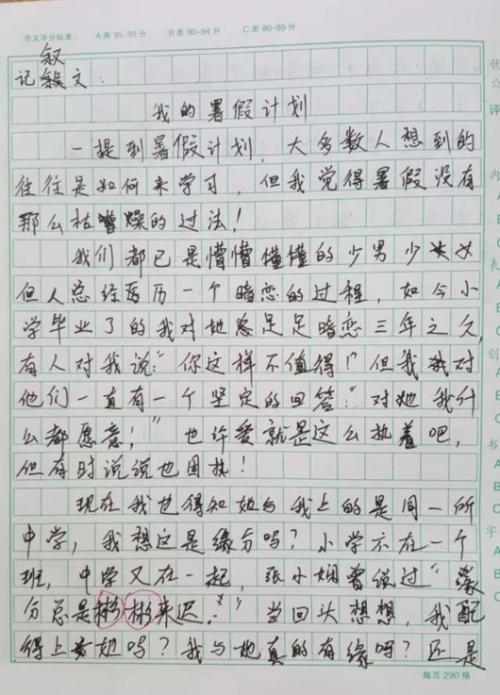 作文评分标准： A类 95-99分 B类 90-94分 C类 80-89分
叙
记文：
我的暑假计划
一提到暑假计划，大多数人想到的
往往是如何来学习，但我觉得暑假没有
那么枯燥的过法！
我们都已是懵懵懂懂的少男少女
但人总经历一个暗恋的过程，如今小
学毕业了的我对她足足暗恋三年之久，
有人对我说："你这样不值得！"但我对
他们一直有一个坚定的回答："对她我什
么都愿意！"也许爱就是这么执着吧，
但有时说说也困扰！
现在我也得知她与我上的是同一所
中学，我想这是缘分吗？小学不在一个
班，中学又在一起，张小娴曾说过"缘
分总是彬彬来迟。"当回头想想，我配
得上她吗？我与她真的有缘吗？还是
每页290格